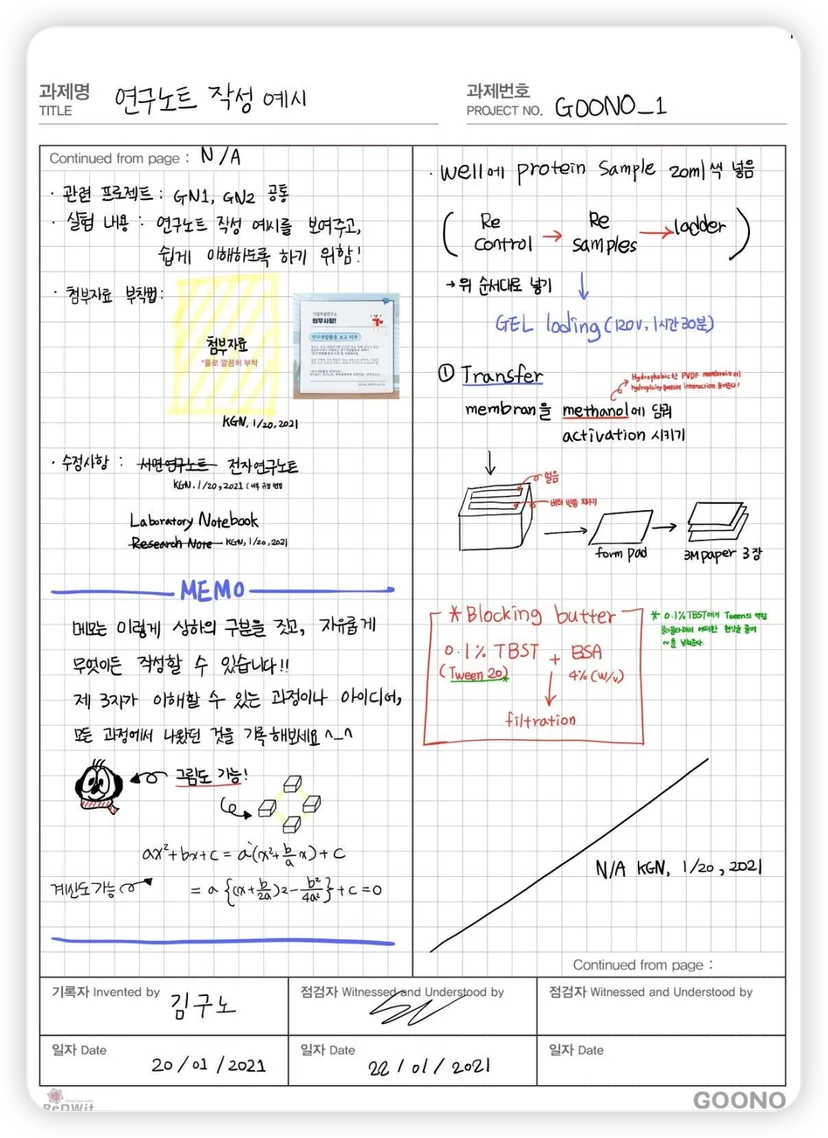 과제명
TITLE
연구노트 작성 예시
과제번호
PROJECT NO. GOONO_1
Continued from page : N/A
· 관련 프로젝트 : GN1, GN2 공통
· 실험 내용 : 연구노트 작성 예시를 보여주고,
쉽게 이해하도록 하기 위함!
· 첨부자료 부착법:
첨부자료
*풀로 깔끔히 부착
의무사항!
연구개발활동 보고 의무
KGN. 1/20, 2021
· 수정사항 : 서면연구노트 전자연구노트
KGN. 1/20, 2021 (내부 규정 변경
Laboratory Notebook
Research Note KGN, 1/20, 2021
MEMO
메모는 이렇게 상하의 구분을 짓고, 자유롭게
무엇이든 작성할 수 있습니다!!
제 3자가 이해할 수 있는 과정이나 아이디어,
모든 과정에서 나왔던 것을 기록해보세요 ^_^
그림도 가능!
ax²+bx+c = a(x²+b/a x)+c
계산도가능
= a {(x+b/2a)2-b²/4a²}+c=0
· well에 protein sample 20ml씩 넣음
( Re control → Re samples → ladder )
→ 위 순서대로 넣기
GEL loding (120V, 1시간 30분)
① Transfer
Hydrophobic한 PVDF membrane에
membran을 methanol에 담궈
activation 시키기
얼음
form pad
3M paper 3장
*Blocking butter
0.1% TBST + BSA
(Tween 20) 4% (W/v)
filtration
* 0.1% TBST에서 Tween의 역할
N/A KGN, 1/20, 2021
Continued from page :
기록자 Invented by
김구노
점검자 Witnessed and Understood by
점검자 Witnessed and Understood by
일자 Date
20/01/2021
일자 Date
22/01/2021
일자 Date
ReDWit
GOONO